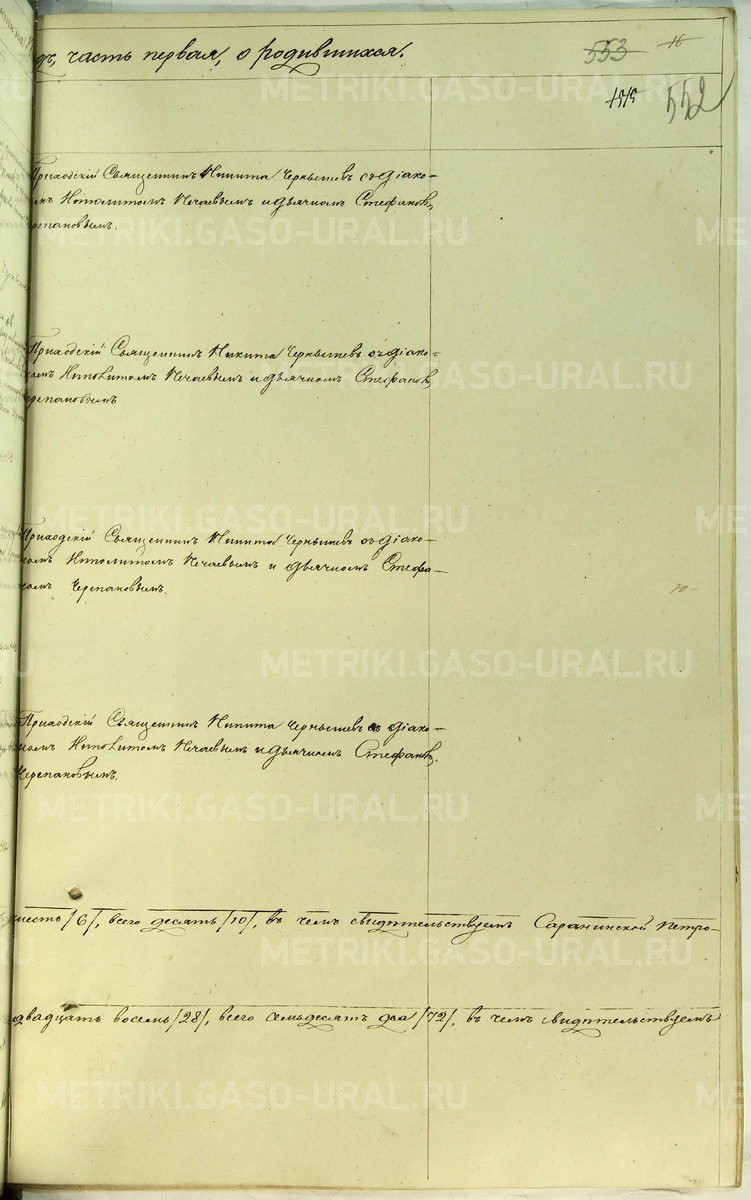 дъ, часть первая, о родившихся.
553
16
1515
552
Приходскій Священникъ Никита Чернышевъ съ діако-
номъ Ипполитомъ Нечаевымъ и дьячкомъ Стефаном,
Черепановымъ.
Приходскій Священникъ Никита Чернышевъ съ діако-
номъ Ипполитомъ Нечаевымъ и дьячкомъ Стефаном,
Черепановымъ
Приходскій Священникъ Никита Чернышевъ съ діако-
номъ Ипполитомъ Нечаевымъ и дьячкомъ Стефа-
номъ Черепановымъ.
Ю-
Приходскій Священникъ Никита Чернышевъ съ діако-
номъ Ипполитомъ Нечаевымъ и дьячкомъ Стефаном,
Черепановымъ.
шесть /6/, всего десять /10/, въ чемъ свидѣтельствуемъ Саранинской Петро-
двадцать восемь /28/, всего семьдесятъ два /72/, въ чемъ свидѣтельствуемъ
METRIKI.GASO-URAL.RU